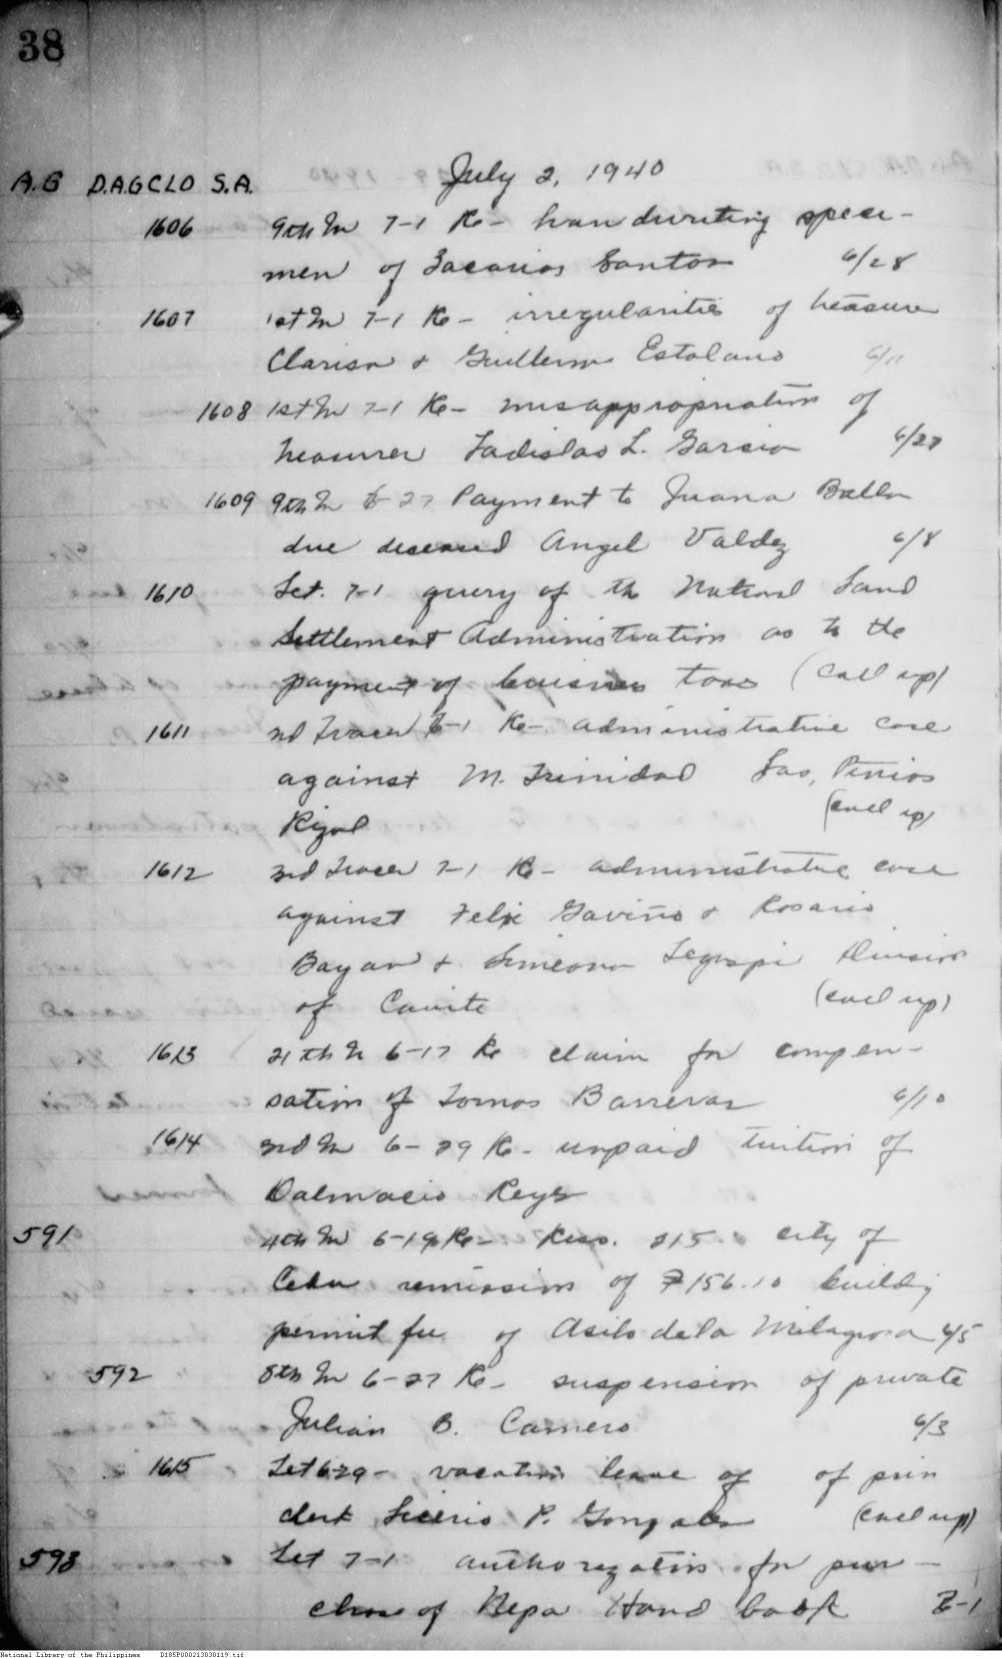 38
A.G D.A.G CLO S.A. July 2, 1940
1606 9th In 7-1 Re- handwriting speci-
men of Zacarias Santos 6/28
1607 1st In 7-1 Re- irregularities of treasure
Clarisa & Guillermo Estolano 6/11
1608 1st In 7-1 Re- misappropriation of
treasurer Ladislao L. Garcia 6/27
1609 9th In 6-27 Payment to Juana
due deceased Angel Valdez 6/8
1610 Let. 7-1 query of the National Land
Settlement Administration as to the
payment of business taxes (call up)
1611 2d Tracer 7-1 Re- administrative case
against M. Trinidad Las, Piñas
Rizal (call up)
1612 3rd Tracer 7-1 Re- administrative case
against Felix Gaviño & Rosario
Bayan & Simeona Legaspi Division
of Cavite (call up)
1613 21th In 6-17 Re claim for compen-
sation of Tomas 6/10
1614 3rd In 6-29 Re- unpaid tuition of
Dalmacio Reyes
591 4th In 6-19 Re- Reso. 215 city of
Cebu remission of ₱156.10 building
permit fee of Asilo de la Milagrosa 4/5
592 8th In 6-27 Re- suspension of private
Julian B. Carnero 6/3
1615 Let 6-29- vacation leave of of prin
clerk P. Gonzales (call up)
593 Let 7-1 authorization for pur-
chase of Bepa Hand book 7-1
National Library of the Philippines D185P000213830119.tif